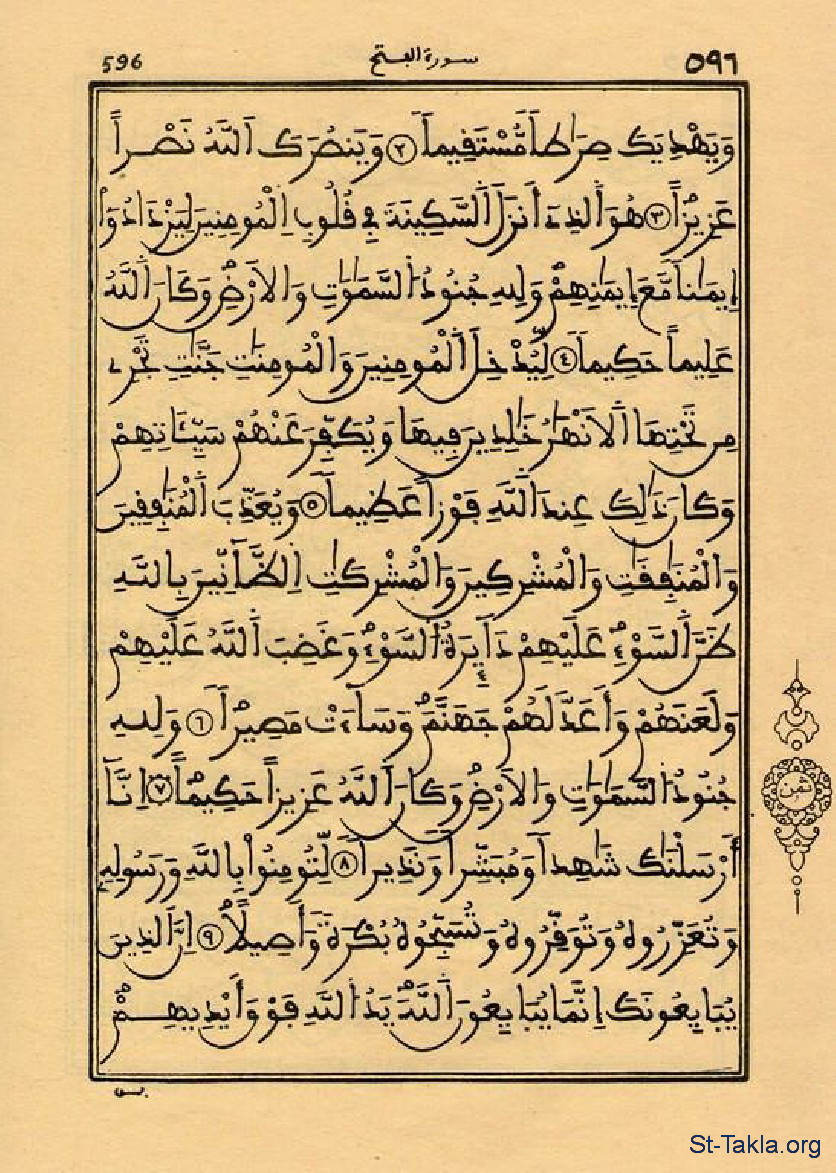 596 سورة الفتح ٥٩٦
وَيَهْدِيَكَ صِرَٰطاٗ مُّسْتَقِيماٗ ٢ وَيَنصُرَكَ اَ۬للَّهُ نَصْراً
عَزِيزاًۖ ٣ هُوَ اَ۬لذِےٓ أَنزَلَ اَ۬لسَّكِينَةَ فِے قُلُوبِ اِ۬لْمُومِنِينَ لِيَزْدَادُوٓاْ
إِيمَٰناٗ مَّعَ إِيمَٰنِهِمْۖ وَلِلهِ جُنُودُ اُ۬لسَّمَٰوَٰتِ وَالَارْضِۖ وَكَانَ اَ۬للَّهُ
عَلِيماً حَكِيماٗ ٤ لِّيُدْخِلَ اَ۬لْمُومِنِينَ وَالْمُومِنَٰتِ جَنَّٰتٖ تَجْرِے
مِن تَحْتِهَا اَ۬لَانْهَٰرُ خَٰلِدِينَ فِيهَا وَيُكَفِّرَ عَنْهُمْ سَيِّـَٔاتِهِمْ
وَكَانَ ذَٰلِكَ عِندَ اَ۬للَّهِ فَوْزاً عَظِيماٗ ٥ وَيُعَذِّبَ اَ۬لْمُنَٰفِقِينَ
وَالْمُنَٰفِقَٰتِ وَالْمُشْرِكِينَ وَالْمُشْرِكَٰتِ اِ۬لظَّآنِّينَ بِاللَّهِ
ظَنَّ اَ۬لسَّوْءِۖ عَلَيْهِمْ دَآئِرَةُ اُ۬لسَّوْءِۖ وَغَضِبَ اَ۬للَّهُ عَلَيْهِمْ
وَلَعَنَهُمْ وَأَعَدَّ لَهُمْ جَهَنَّمَۖ وَسَآءَتْ مَصِيراٗۖ ٦ وَلِلهِ
جُنُودُ اُ۬لسَّمَٰوَٰتِ وَالَارْضِۖ وَكَانَ اَ۬للَّهُ عَزِيزاً حَكِيماًۖ ٧ اِنَّآ
أَرْسَلْنَٰكَ شَٰهِداٗ وَمُبَشِّراٗ وَنَذِيراٗ ٨ لِّتُومِنُواْ بِاللَّهِ وَرَسُولِهِۦ
وَتُعَزِّرُوهُ وَتُوَقِّرُوهُ وَتُسَبِّحُوهُ بُكْرَةٗ وَأَصِيلاًۖ ٩ اِنَّ اَ۬لذِينَ
يُبَايِعُونَكَ إِنَّمَا يُبَايِعُونَ اَ۬للَّهَۖ يَدُ اُ۬للَّهِ فَوْقَ أَيْدِيهِمْۖ
ثمن
St-Takla.org